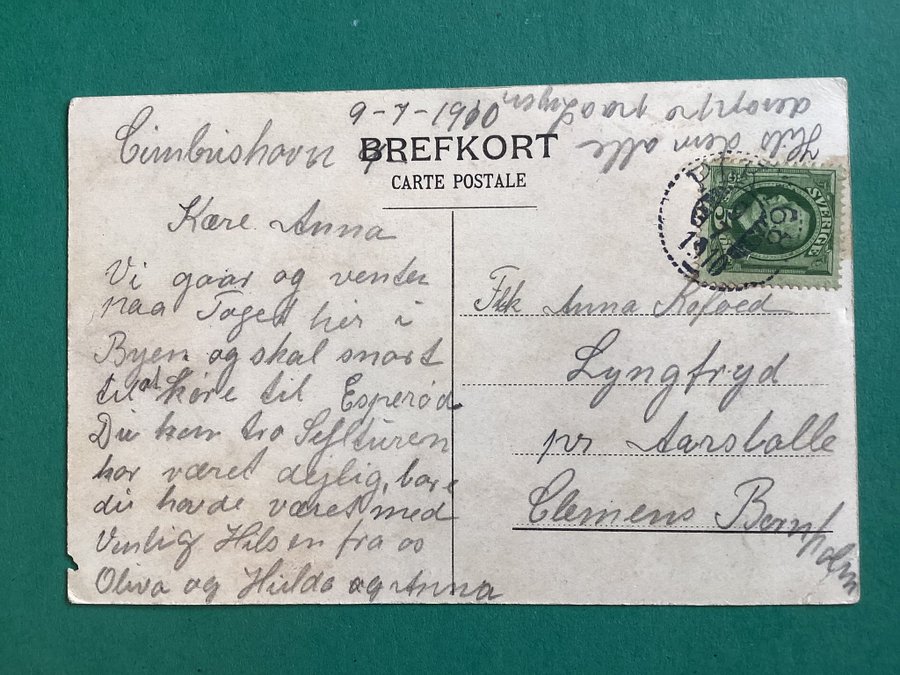 9-7-1910
Cimbrishavn
BREFKORT
CARTE POSTALE
Hils dem alle
deroppe paa Lyen
SVERIGE
5
Kære Anna
Vi gaar og venter
paa Toget her i
Byen og skal snart
til at køre til Esperød
Du kan tro Sejlturen
har været dejlig, bare
du havde været med
Venlig Hilsen fra os
Oliva og Hulda og Anna
Frk Anna Kofoed
Lyngfryd
pr Aarsballe
Clemens Bornholm